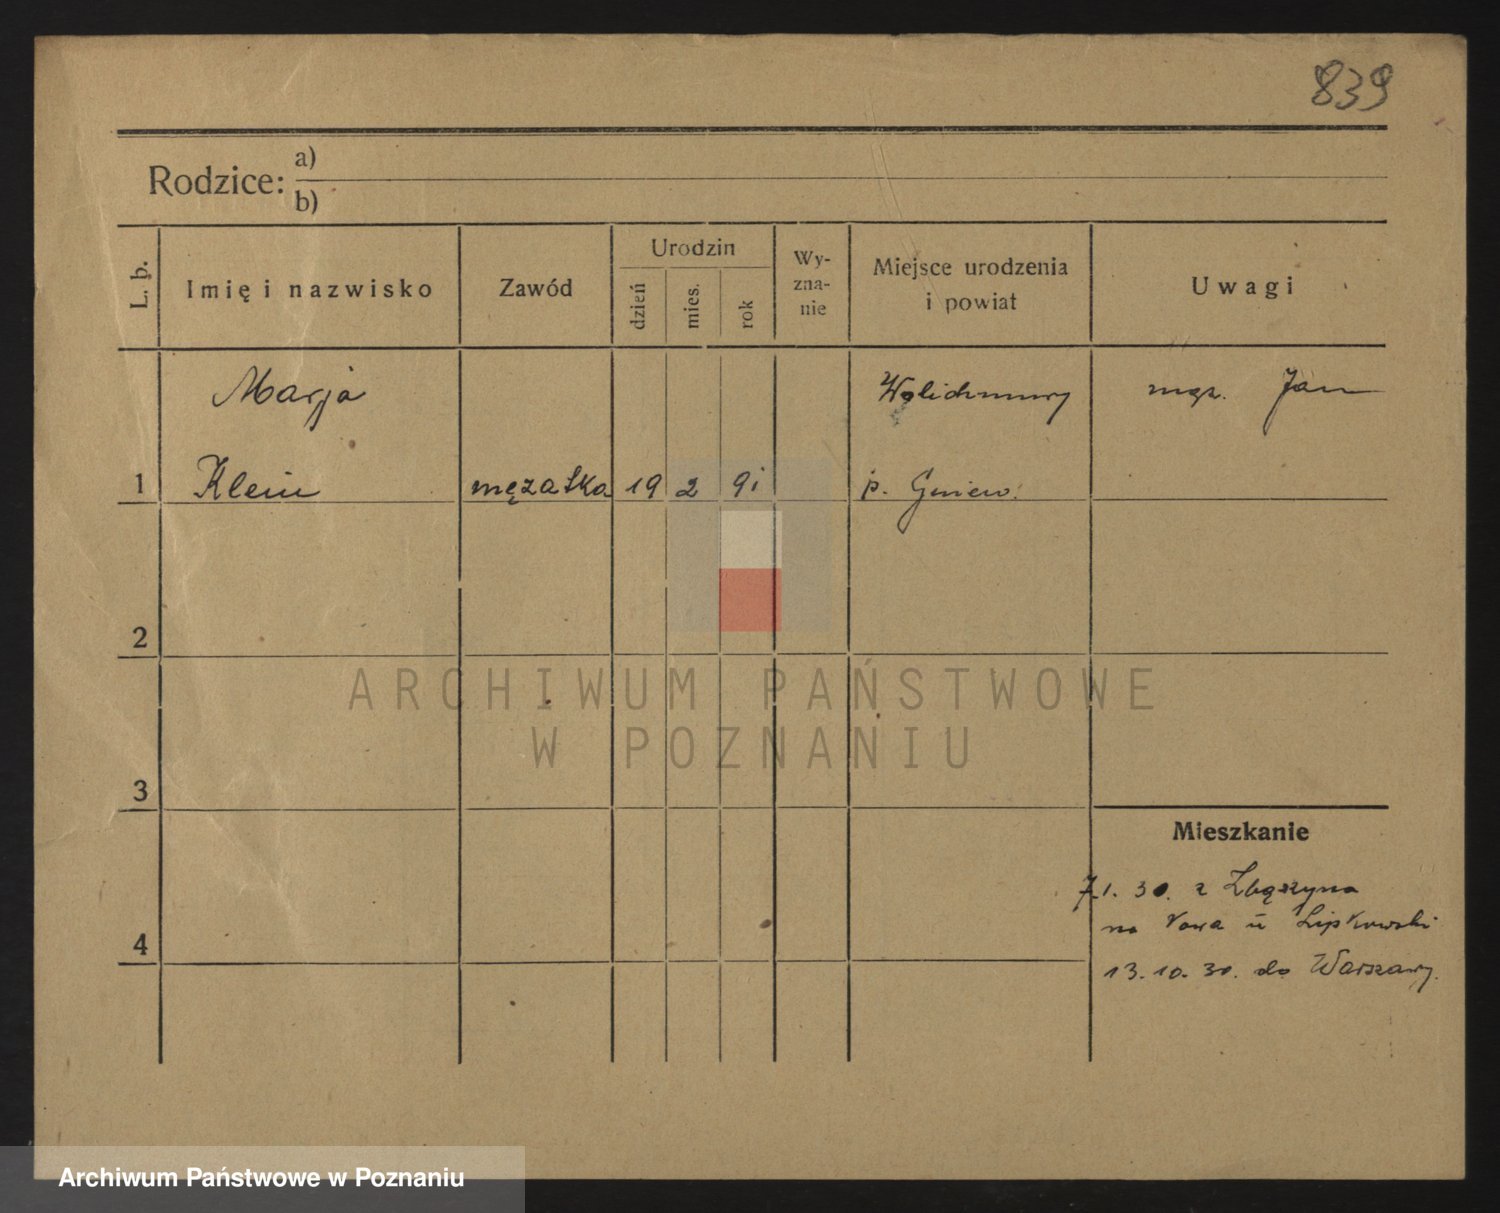 839
Rodzice: a)
b)
L. p.
Imię i nazwisko
Zawód
Urodzin
dzień
mies.
rok
Wy-
zna-
nie
Miejsce urodzenia
i powiat
Uwagi
Marja
Klein
1
mężatka
19
2
91
p. Gniew.
Jan
2
3
4
Mieszkanie
7.1.30. z Zbąszyna
na Lipkowski
13.10.30. do Warszawy.
ARCHIWUM PAŃSTWOWE
W POZNANIU
Archiwum Państwowe w Poznaniu